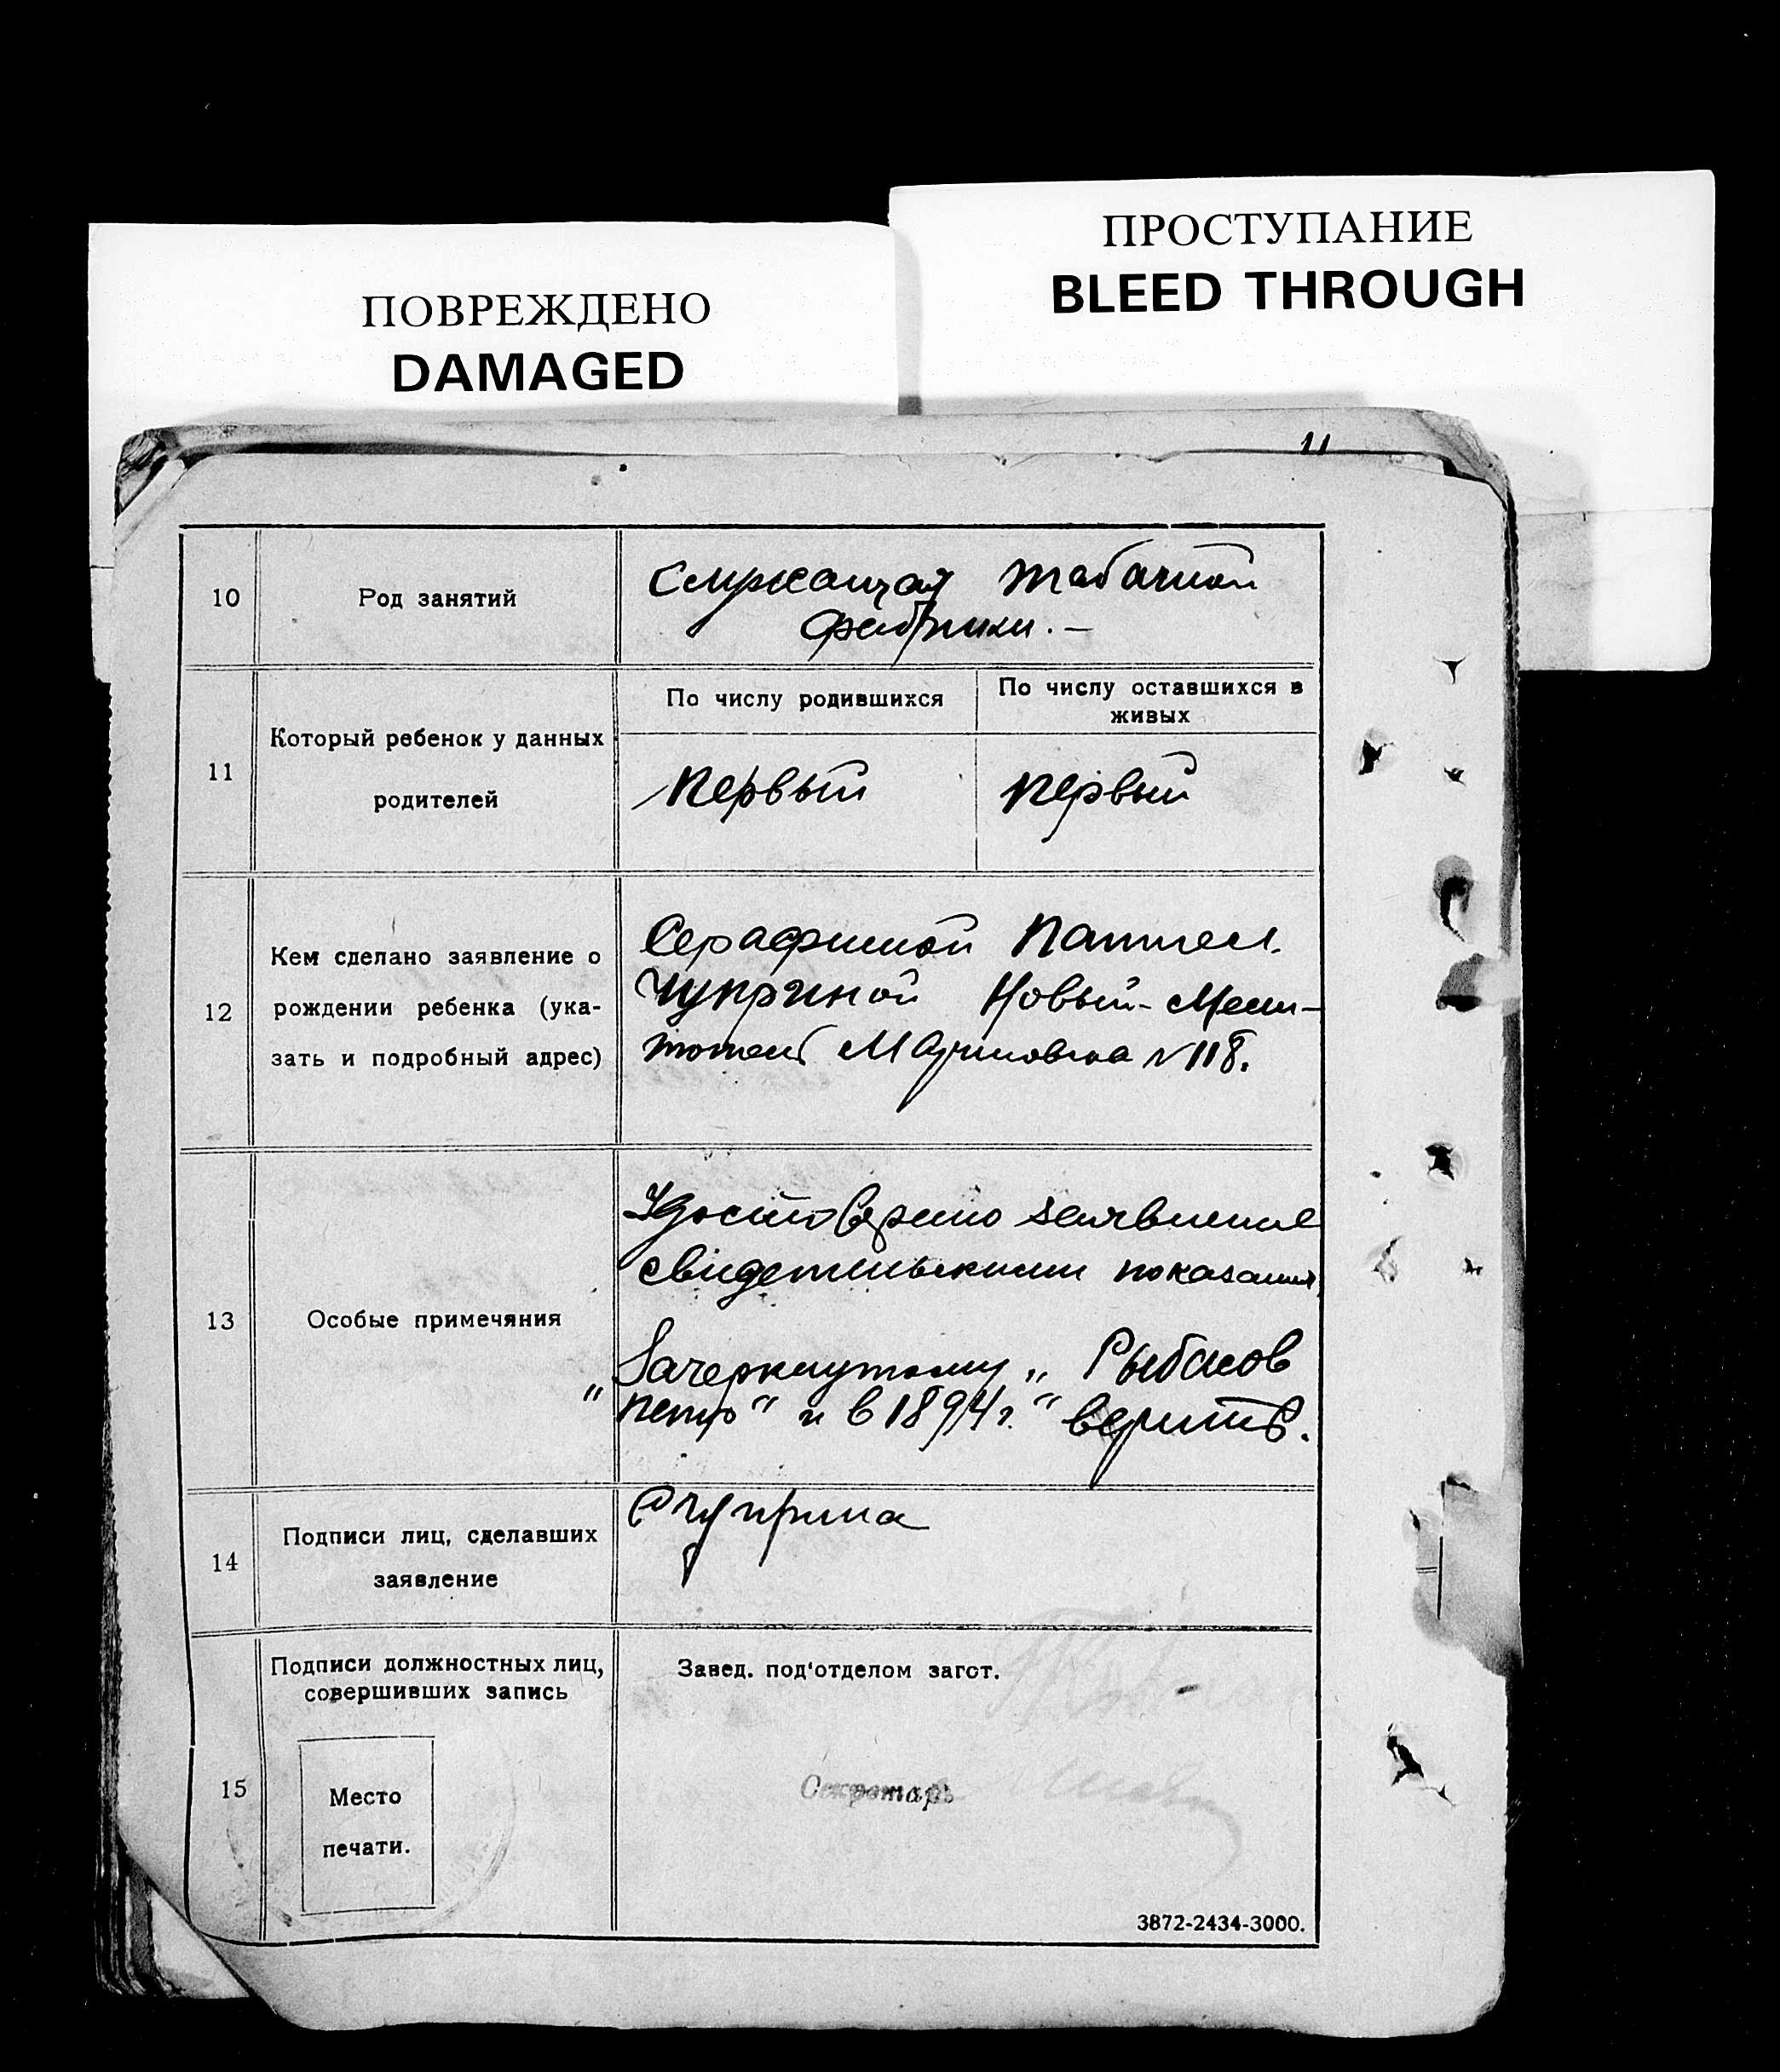 ПРОСТУПАНИЕ
BLEED THROUGH
ПОВРЕЖДЕНО
DAMAGED
11
10 Род занятий Служащая табачной
фабрики. –
11 Который ребенок у данных
родителей
По числу родившихся
По числу оставшихся в
живых
Первый первый
12 Кем сделано заявление о
рождении ребенка (ука-
зать и подробный адрес)
Серафимой
Чуприной Новый-
№ 118.
13 Особые примечяния
Удостоверено заявление
свидетельскими показания
Зачеркнутому „ Рыбаков
„ Петр“ и в 1894 г.“ верить.
14 Подписи лиц, сделавших
заявление
С Чуприна
15 Подписи должностных лиц,
совершивших запись
Место
печати.
Завед. под‘отделом загот.
Секретарь
3872-2434-3000.